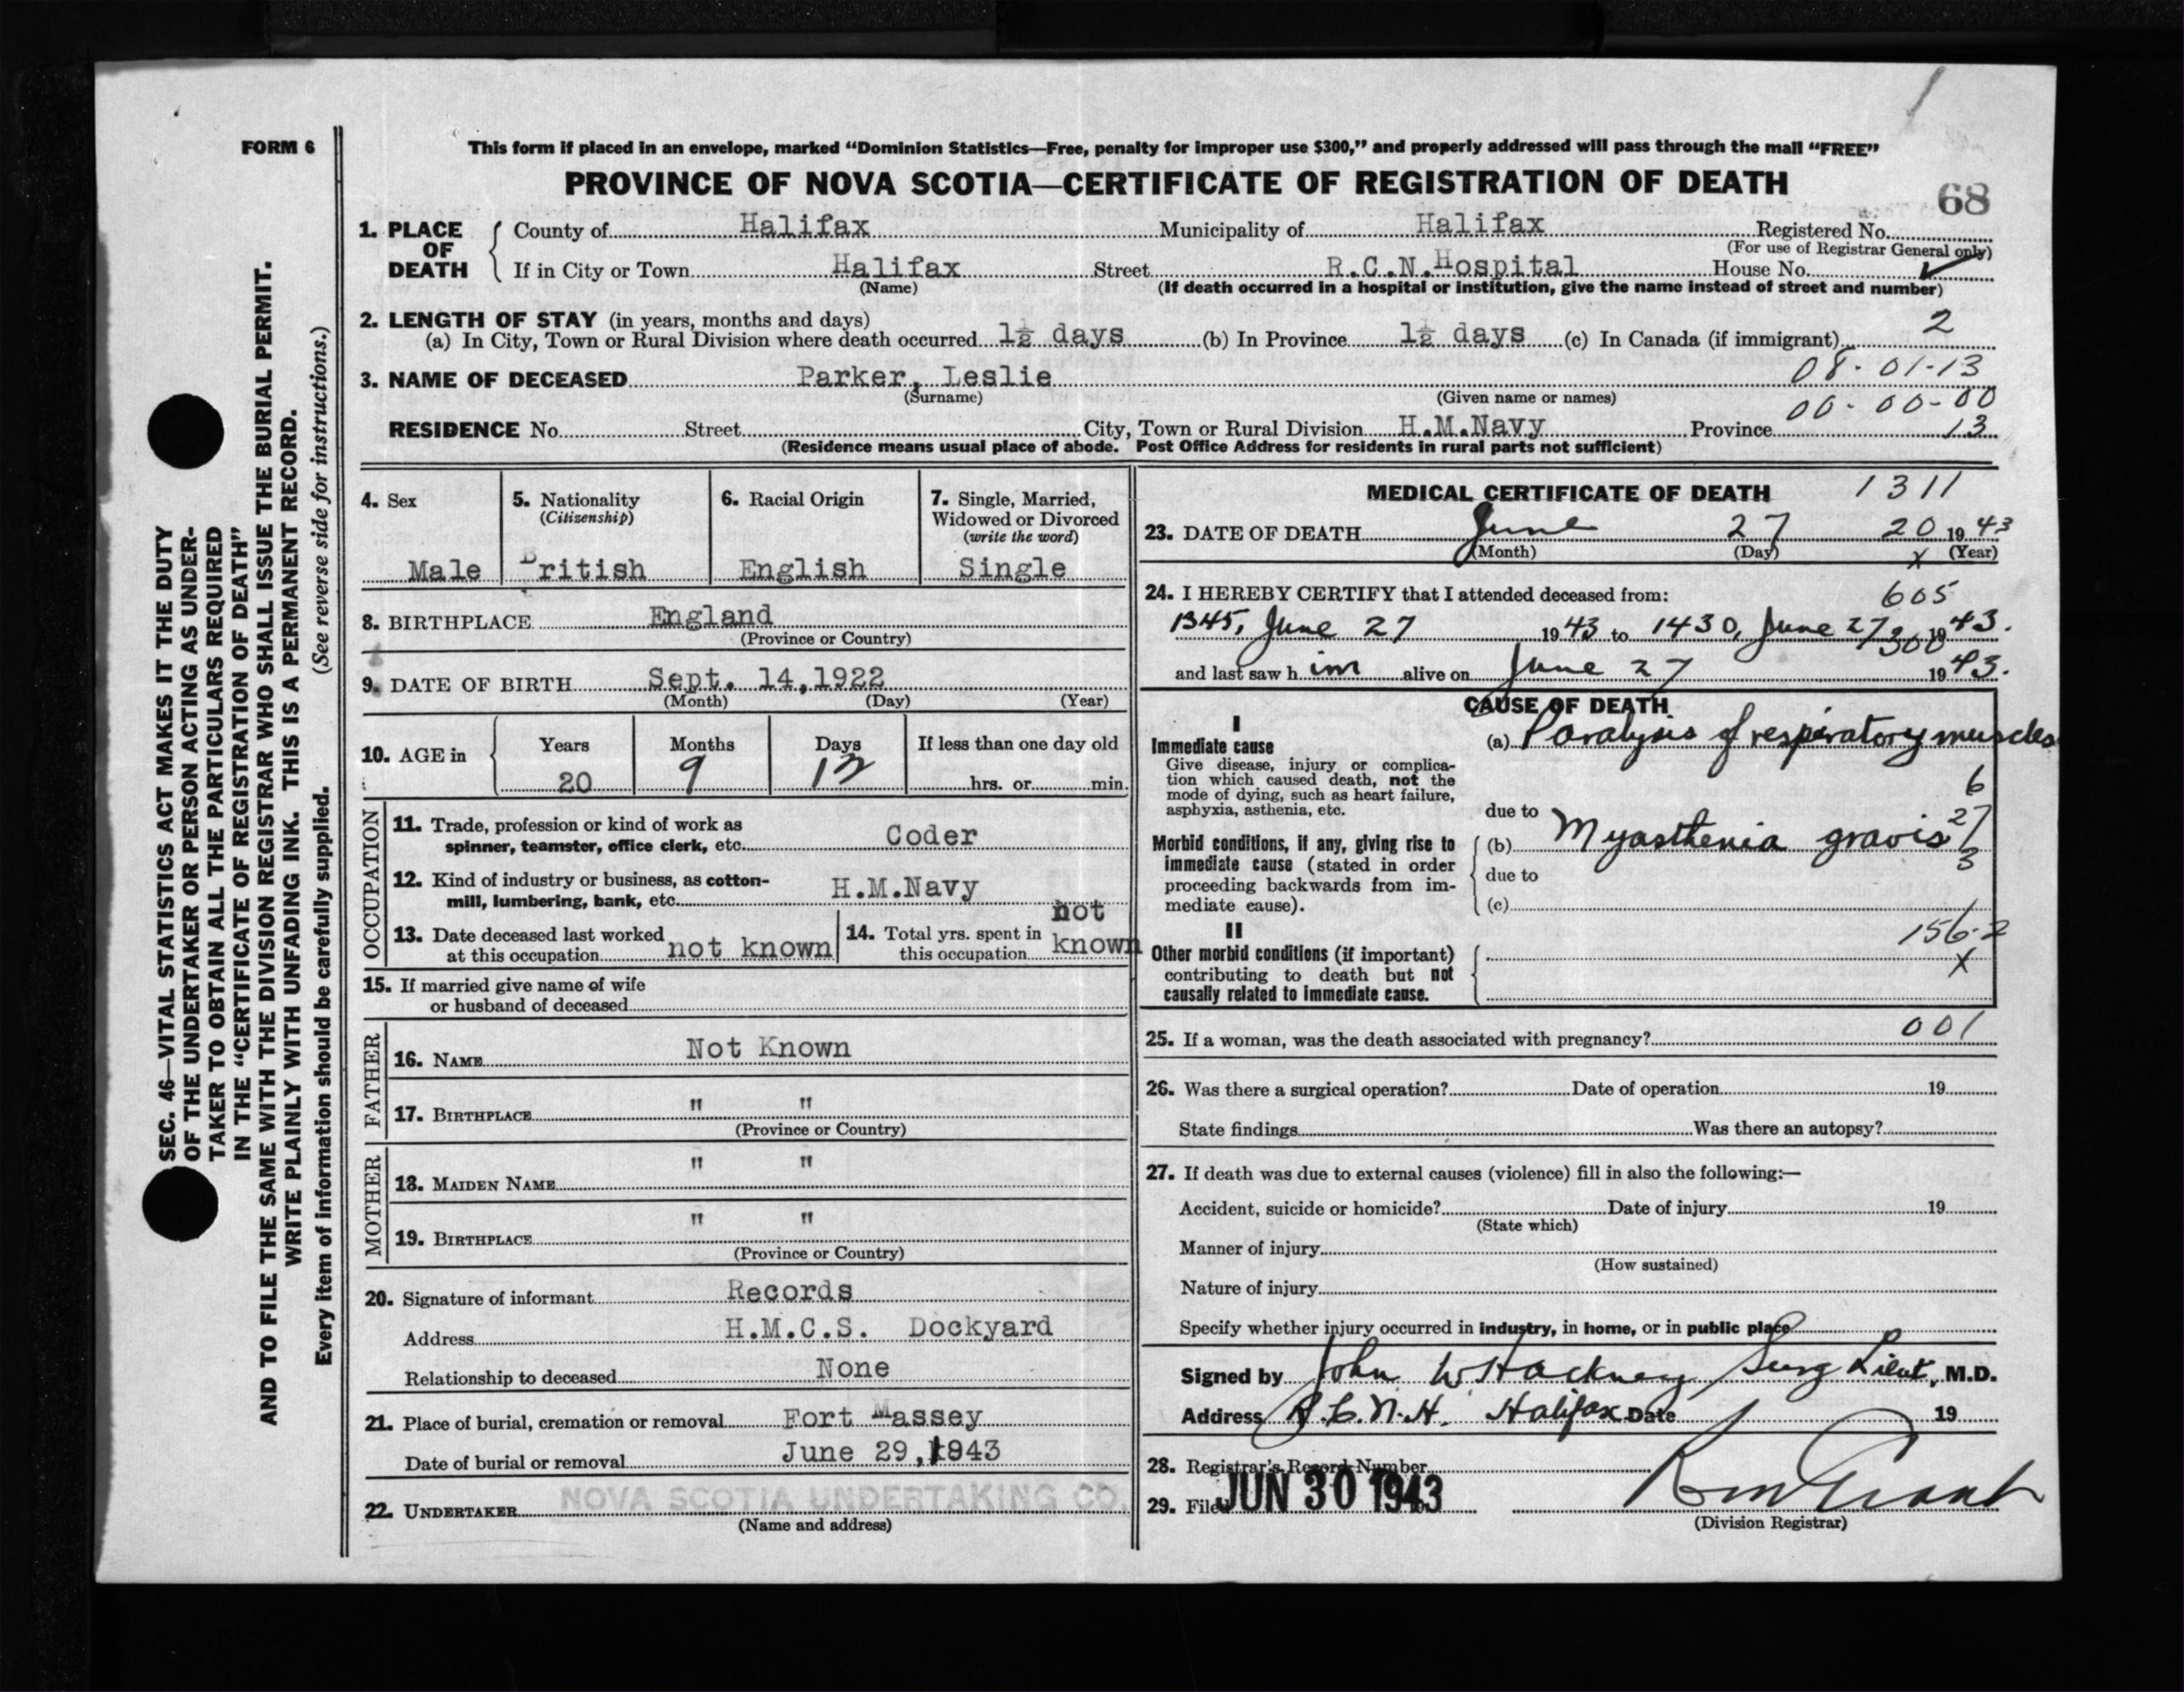 FORM 6
This form if placed in an envelope, marked "Dominion Statistics—Free, penalty for improper use $300," and properly addressed will pass through the mail "FREE"
PROVINCE OF NOVA SCOTIA—CERTIFICATE OF REGISTRATION OF DEATH
68
1. PLACE OF DEATH
County of Halifax Municipality of Halifax Registered No.
(For use of Registrar General only)
If in City or Town Halifax Street R.C.N.Hospital House No.
(Name) (If death occurred in a hospital or institution, give the name instead of street and number)
2. LENGTH OF STAY (in years, months and days) 2
(a) In City, Town or Rural Division where death occurred 1½ days (b) In Province 1½ days (c) In Canada (if immigrant)
08-01-13
3. NAME OF DECEASED Parker, Leslie
(Surname) (Given name or names)
00-00-00
RESIDENCE No. Street City, Town or Rural Division H.M.Navy Province 13
(Residence means usual place of abode. Post Office Address for residents in rural parts not sufficient)
4. Sex
Male
5. Nationality
(Citizenship)
British
6. Racial Origin
English
7. Single, Married, Widowed or Divorced
(write the word)
Single
8. BIRTHPLACE England
(Province or Country)
9. DATE OF BIRTH Sept. 14,1922
(Month) (Day) (Year)
10. AGE in Years Months Days If less than one day old
20 9 12 hrs. or min.
OCCUPATION
11. Trade, profession or kind of work as
spinner, teamster, office clerk, etc. Coder
12. Kind of industry or business, as cotton-
mill, lumbering, bank, etc. H.M.Navy
13. Date deceased last worked
at this occupation not known
14. Total yrs. spent in
this occupation not known
15. If married give name of wife
or husband of deceased
FATHER
16. NAME Not Known
17. BIRTHPLACE " "
(Province or Country)
MOTHER
18. MAIDEN NAME " "
19. BIRTHPLACE " "
(Province or Country)
20. Signature of informant Records
Address H.M.C.S. Dockyard
Relationship to deceased None
21. Place of burial, cremation or removal Fort Massey
Date of burial or removal June 29,1943
22. UNDERTAKER NOVA SCOTIA UNDERTAKING CO.
(Name and address)
MEDICAL CERTIFICATE OF DEATH 1311
23. DATE OF DEATH June 27 20 1943
(Month) (Day) x (Year)
24. I HEREBY CERTIFY that I attended deceased from: 605
1345, June 27 1943 to 1430, June 27 1943.
300
and last saw him alive on June 27 1943.
CAUSE OF DEATH
I
Immediate cause
Give disease, injury or complica-
tion which caused death, not the
mode of dying, such as heart failure,
asphyxia, asthenia, etc.
(a) Paralysis of respiratory muscles
6
due to
27
Morbid conditions, if any, giving rise to
immediate cause (stated in order
proceeding backwards from im-
mediate cause).
(b) Myasthenia gravis
3
due to
(c)
II
156.2
X
Other morbid conditions (if important)
contributing to death but not
causally related to immediate cause.
25. If a woman, was the death associated with pregnancy? 001
26. Was there a surgical operation? Date of operation 19
State findings Was there an autopsy?
27. If death was due to external causes (violence) fill in also the following:—
Accident, suicide or homicide? Date of injury 19
(State which)
Manner of injury
(How sustained)
Nature of injury
Specify whether injury occurred in industry, in home, or in public place
Signed by John W Hackney Surg Lieut, M.D.
Address R.C.N.H. Halifax Date 19
28. Registrar's Record Number
29. Filed JUN 30 1943
(Division Registrar)
SEC. 46—VITAL STATISTICS ACT MAKES IT THE DUTY
OF THE UNDERTAKER OR PERSON ACTING AS UNDER-
TAKER TO OBTAIN ALL THE PARTICULARS REQUIRED
IN THE "CERTIFICATE OF REGISTRATION OF DEATH"
AND TO FILE THE SAME WITH THE DIVISION REGISTRAR WHO SHALL ISSUE THE BURIAL PERMIT.
WRITE PLAINLY WITH UNFADING INK. THIS IS A PERMANENT RECORD.
Every item of information should be carefully supplied. (See reverse side for instructions.)